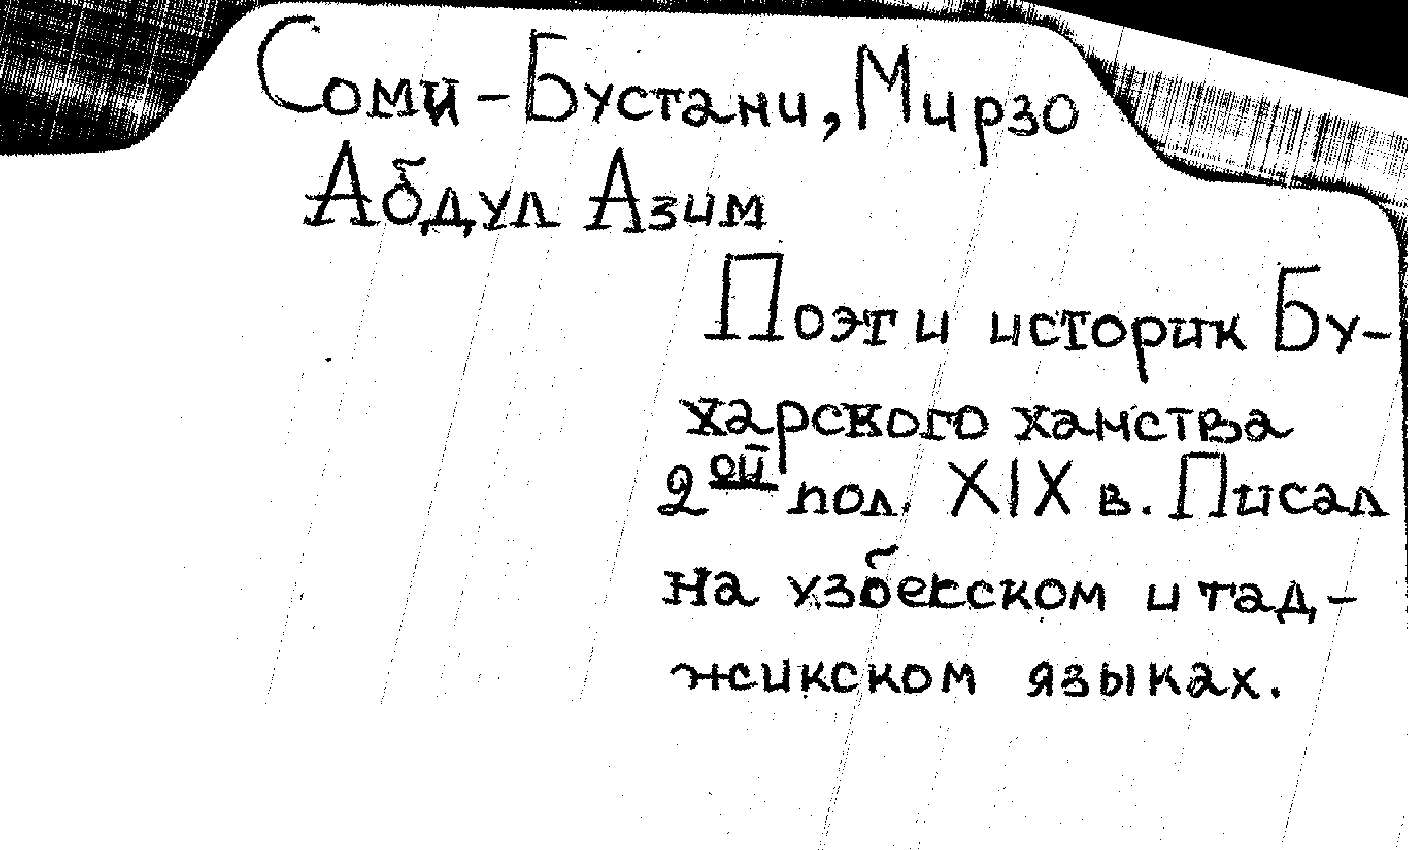 Соми-Бустани, Мирзо
Абдул Азим
Поэт и историк Бу-
харского ханства
2ой пол. XIX в. Писал
на узбекском и тад-
жикском языках.